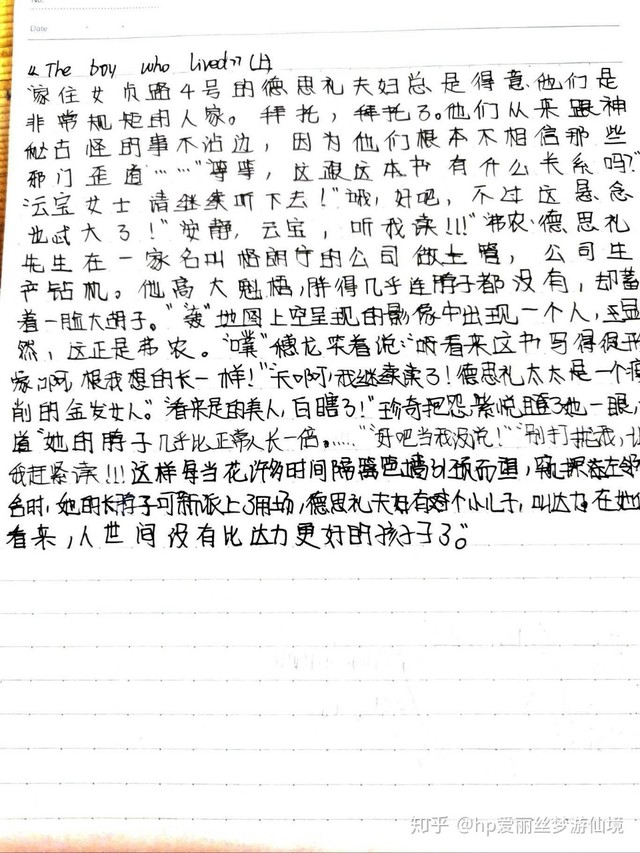 No:
Date
《The boy who lived》(上)
"家住女贞路4号的德思礼夫妇总是得意他们是
非常规矩的人家。拜托,拜托了。他们从来跟神
秘古怪的事不沾边,因为他们根本不相信那些
邪门歪道……""等等,这跟这本书有什么关系吗?"
"云宝女士请继续听下去!""哦,好吧,不过这悬念
也太大了!""安静,云宝,听我读!!!""弗农·德思礼
先生在一家名叫格朗宁的公司做主管,公司生
产钻机。他高大魁梧,胖得几乎连脖子都没有,却蓄
着一脸大胡子。""轰"地图上空呈现的影像中出现一个人,显
然,这正是弗农。"噗"穗龙笑着说:"看来这书写得很形
象啊,跟我想的长一样!""天啊,我继续读了!德思礼太太是一个瘦
削的金发女人。""看来是的美人,白瞎了!"珍奇把忍了她一眼,
道"她的脖子几乎比正常人长一倍。……""好吧当我没说!""别打扰我,让
我赶紧读!!!这样每当花许多时间隔着篱墙引颈而望,
时,她的长脖子可新派上了用场,德思礼夫妇有个小儿子,叫达力,在她
看来,人世间没有比达力更好的孩子了。"
知乎 @hp爱丽丝梦游仙境